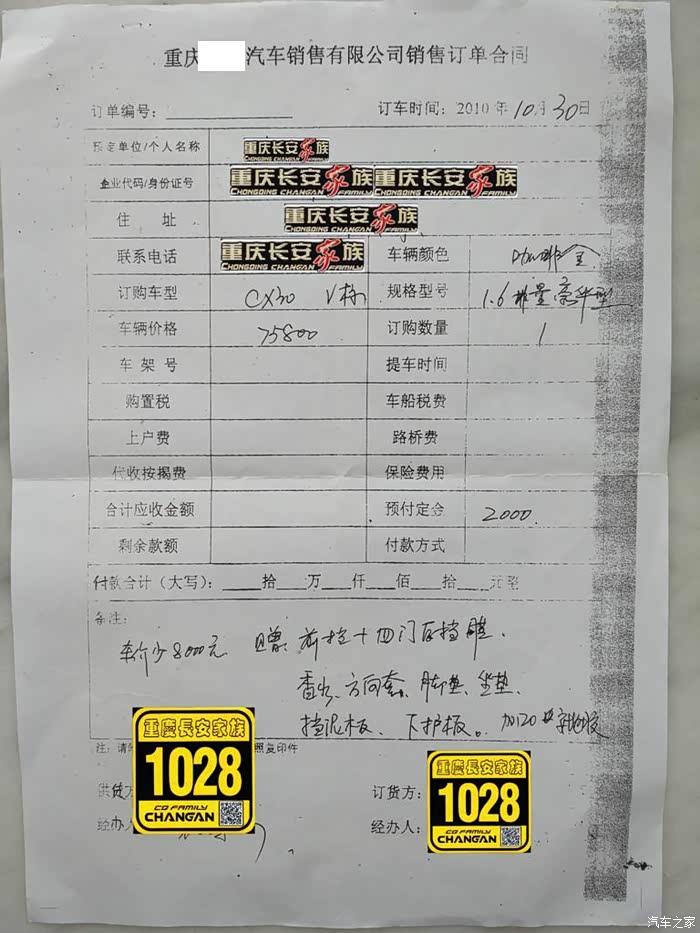 重庆 汽车销售有限公司销售订单合同
订单编号：
订车时间：2010年10月30日
预定单位/个人名称 重庆长安家族 CHONGQING CHANGAN FAMILY
企业代码/身份证号 重庆长安家族 CHONGQING CHANGAN FAMILY 重庆长安家族 CHONGQING CHANGAN FAMILY
住 址 重庆长安家族 CHONGQING CHANGAN FAMILY
联系电话 重庆长安家族 CHONGQING CHANGAN FAMILY 车辆颜色 咖啡金
订购车型 CX30 规格型号 1.6排量豪华型
车辆价格 75800 订购数量 1
车 架 号 提车时间
购置税 车船税费
上户费 路桥费
代收按揭费 保险费用
合计应收金额 预付定金 2000
剩余款额 付款方式
付款合计（大写）： 拾 万 仟 佰 拾 元整
备注：
车价少8000元 赠 前挡+四门后挡膜、
香水、方向套、脚垫、坐垫、
挡泥板、下护板。
注：请 照复印件
供货方
订货方：
经办人
经办人：
重慶長安家族
1028
CQ FAMILY
CHANGAN
重慶長安家族
1028
CQ FAMILY
CHANGAN
汽车之家